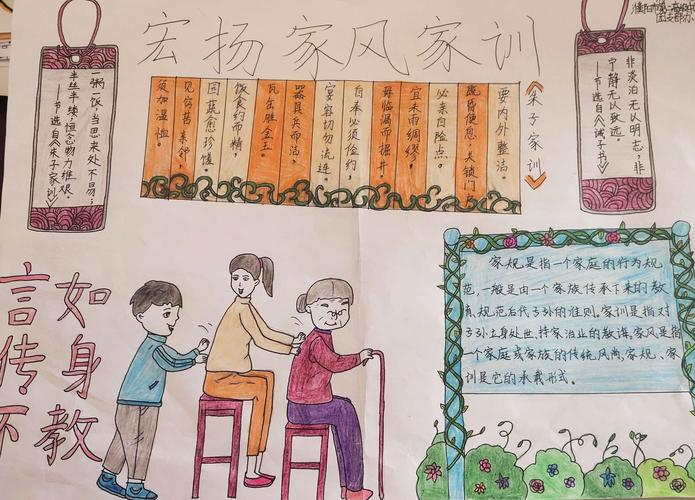 宏扬家风家训
一粥一饭,当思来处不易;
半丝半缕,恒念物力维艰。
——节选自《朱子家训》
《朱子家训》
要内外整洁
既昏便息,关锁门户
必亲自检点。
宜未雨绸缪
毋临渴而掘井。
自奉必须俭约
宴客切勿流连。
器具质而洁,
瓦缶胜金玉。
饮食约而精,
园蔬愈珍馐。
见穷苦亲邻,
须加温恤。
非淡泊无以明志,非
宁静无以致远。
——节选自《诫子书》
言传不
如身教
家规是指一个家庭的行为规
范,一般是由一个家族传承下来的教
育规范后代子孙的准则。家训是指对
子孙立身处世、持家治业的教诲。家风是指
一个家庭或家族的传统风尚,家规、家
训是它的承载形式。